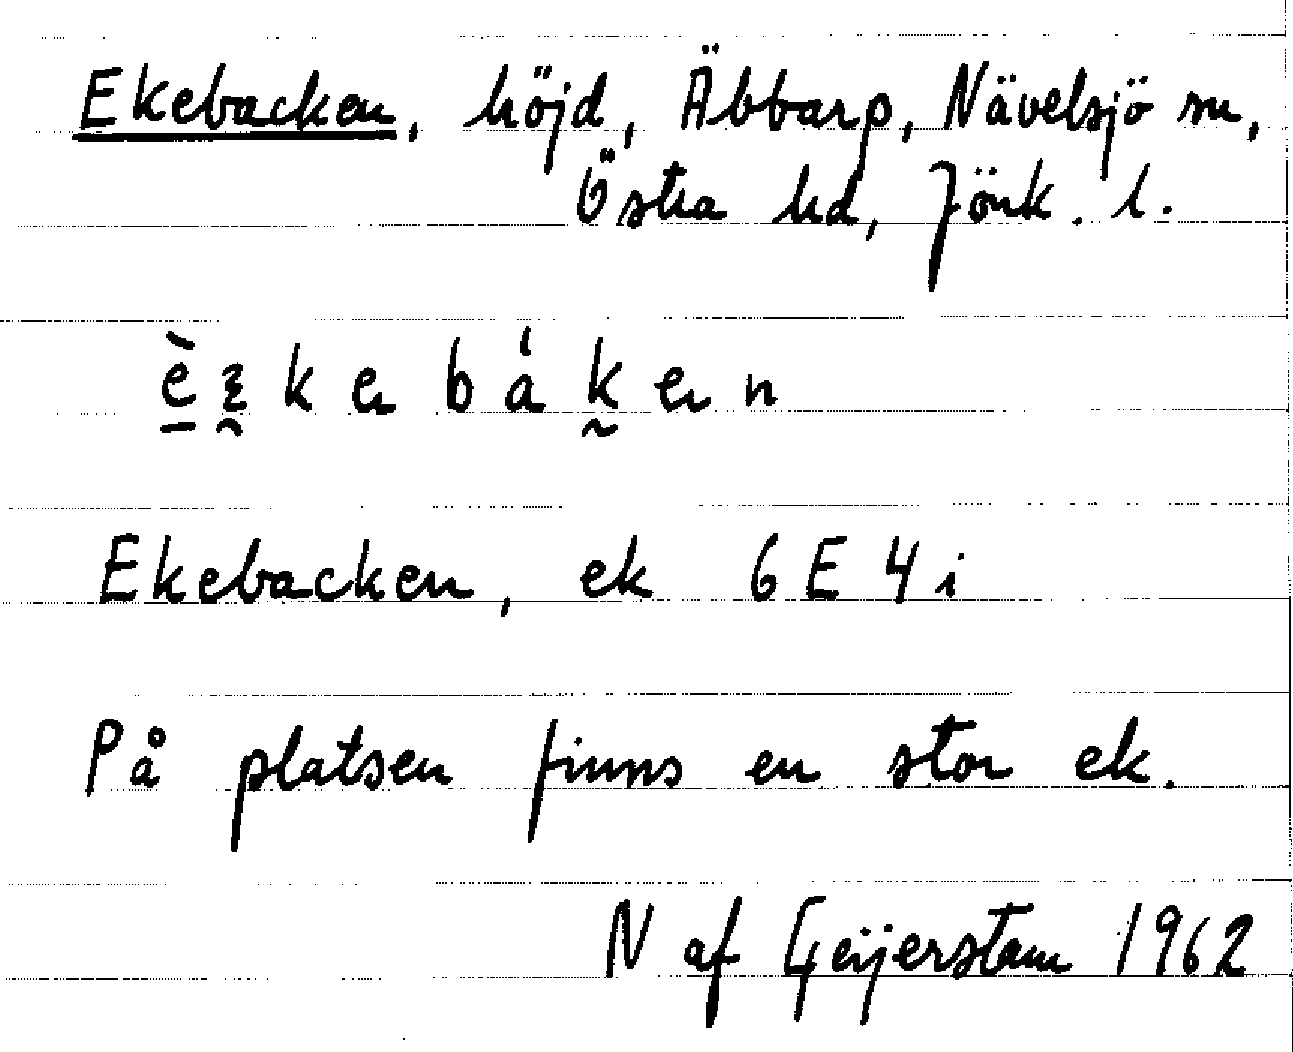 Ekebacken, höjd, Äbbarp, Nävelsjö sn,
Östra hd, Jönk. l.
Ekebacken, ek 6E4i
På platsen finns en stor ek.
N af Geijerstam 1962